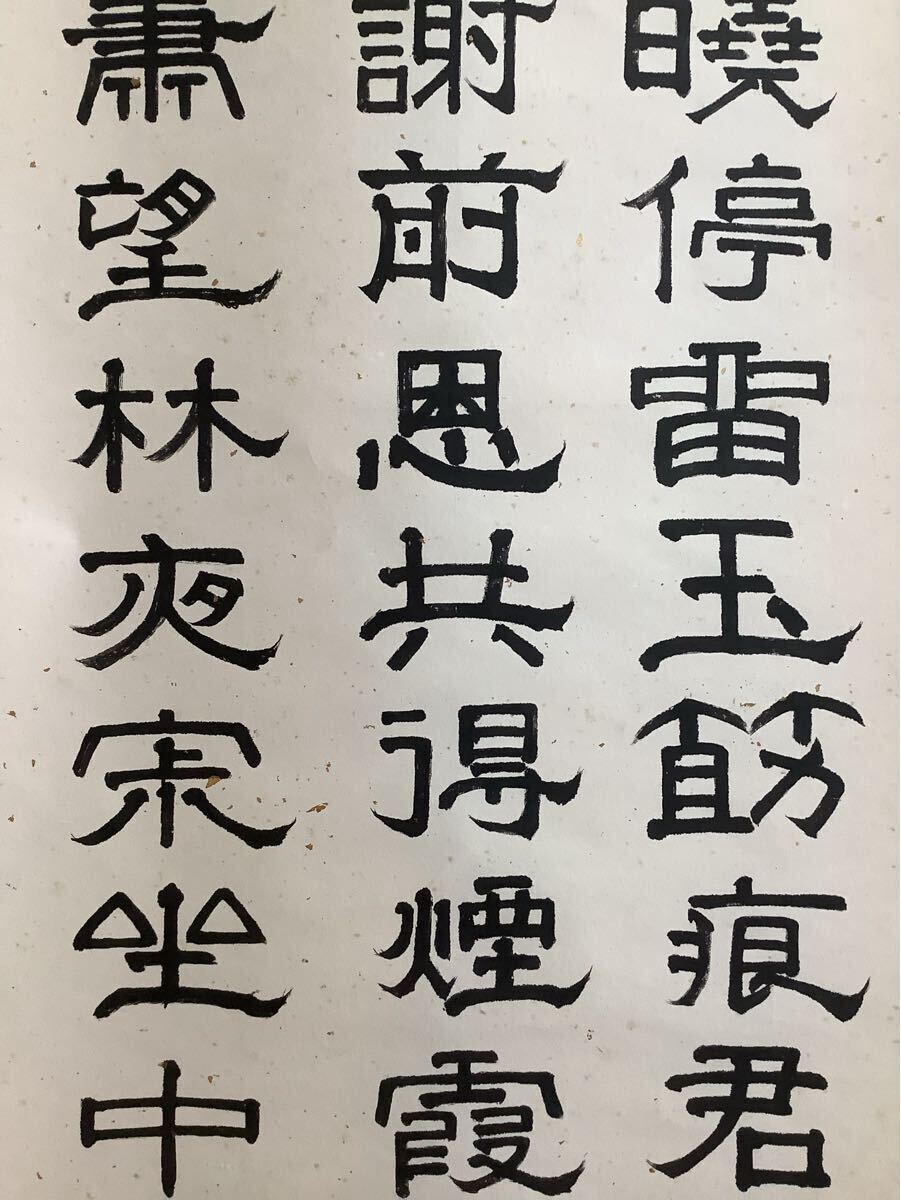 曉停畱玉筯痕君
謝前恩共得煙霞
肅望林夜寂坐中